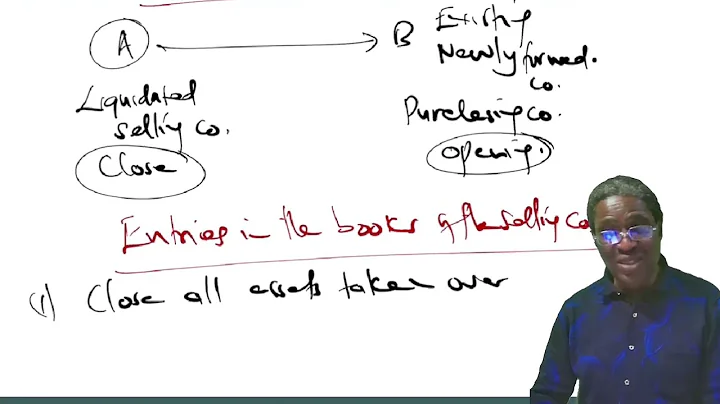 A
B
Existing
Newly formed.
co.
Liquidated
selling co.
Close
Purchasing co.
opening.
Entries in the books of the selling co
(1) Close all assets taken over